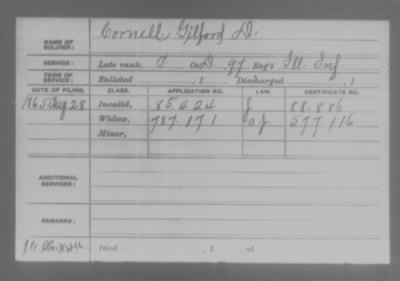 NAME OF SOLDIER: Cornell Gilford D.
SERVICE: Late rank, P Co. D, 97 Reg't Ill. Inf
TERM OF SERVICE: Enlisted , 1 Discharged , 1
DATE OF FILING. CLASS. APPLICATION NO. LAW. CERTIFICATE NO.
1865 Aug 28 Invalid, 85.424 J 88.886
Widow, 787.171 O.J 577.116
Minor,
ADDITIONAL SERVICES:
REMARKS:
Died , 1 , at